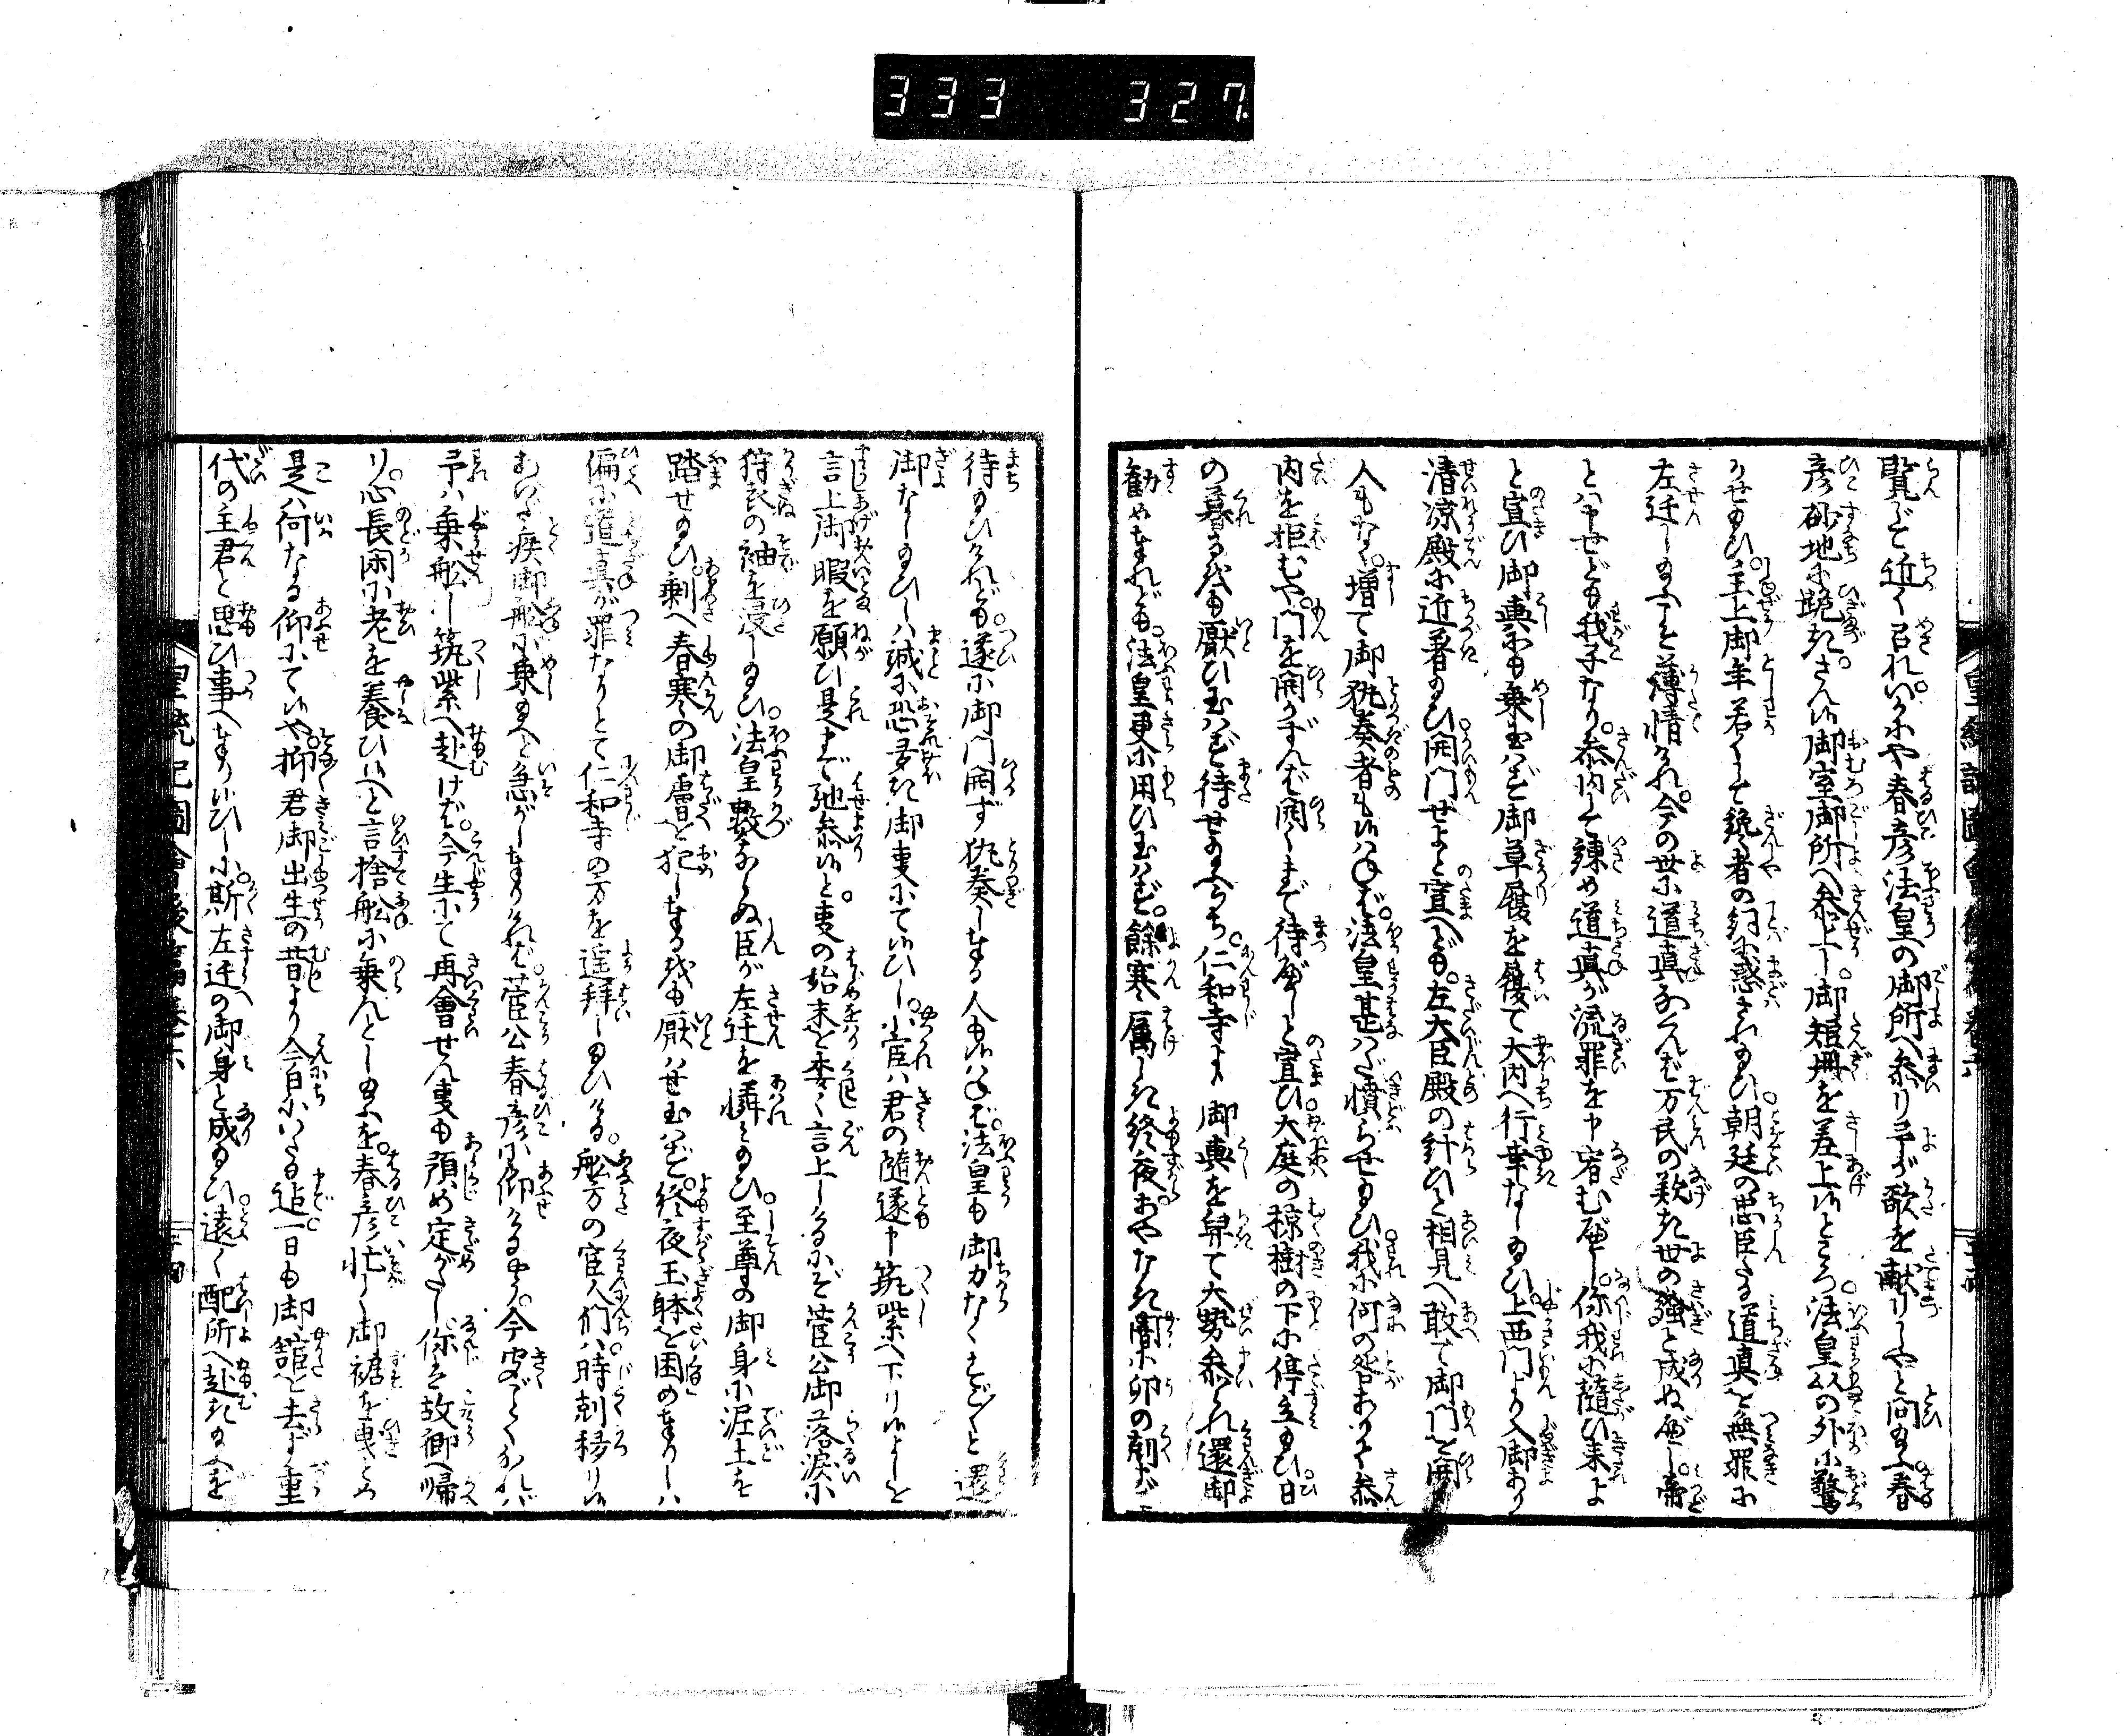 333 327
覧じて近く召れ。いかにや春彦法皇の御所へ参り予が歌を献りしやと問給ふ春
彦砂地に跪き。さん候御室御所へ参上し。御短冊を差上候ところ法皇以の外に驚
かせ給ひ。主上御年若くして讒者の詞に惑され給ひ。朝廷の忠臣たる道真を無罪に
左迁し給ふこそ薄情けれ。今の世に道真なくんば万民の歎き世の騒と成ぬべし。帝
とハ申せども我子なり。参内して諫め道真が流罪を申宥むべし。你我に随ひ来よ
と宣ひ御輿にも乗玉ハず御草履を履て大内へ行幸なし給ひ。上西門より入御あり
清凉殿に近着給ひ。開門せよと宣へども。左大臣殿の計ひと相見へ敢て御門を開
人もなく。増て御執奏者も候ハねば。法皇甚ハだ憤らせ給ひ。我に何の咎ありて参
内を拒むや。門を開かずんば開くまで待べしと宣ひ大庭の椋樹の下に停立給ひ。日
の暮るをも厭ひ玉ハず待せ給ふうち。仁和寺より御輿を舁て大勢参られ還御
勧めまゐれども。法皇更に用ひ玉ハず。餘寒厲しき終夜。あやなき闇に卯の刻まで
待給ひけれども。遂に御門開ず執奏しまゐる人も候ハねば。法皇も御力なくすご〱と還
御なし給ひしハ誠に恐多き御事にて候ひし。小官ハ君の随逐申筑紫へ下り候よしを
言上御暇を願ひ是まで馳参候と。事の始末を委く言上しけるにぞ菅公御落涙に
狩衣の袖を浸し給ひ。法皇数ならぬ臣が左迁を憐ミ給ひ。至尊の御身に泥土を
踏せ給ひ。剰へ春寒の御膚を犯しまゐるをも厭ハせ玉ハず。終夜玉躰を困めまゐりしハ
偏に道真が罪なりとて仁和寺の方を遥拝し給ひける。船方の官人們ハ時刻移り候
疾御船に乗給へと急がしまゐりければ。菅公春彦に仰けるやう。今
予ハ乗船し筑紫へ赴けば。今生にて再會せん事も預め定がたし。你ハ故郷へ帰
り。心長閑に老を養ひ候へと言捨船に乗んとし給ふを。春彦忙しく御裾を曳とゞ
是ハ何なる仰にて候や。抑君御出生の昔より今日にいたる迄一日も御舘を去ず重
代の主君と思ひ事へまゐらひしに。斯左迁の御身と成給ひ。遠く配所へ赴き給ふを